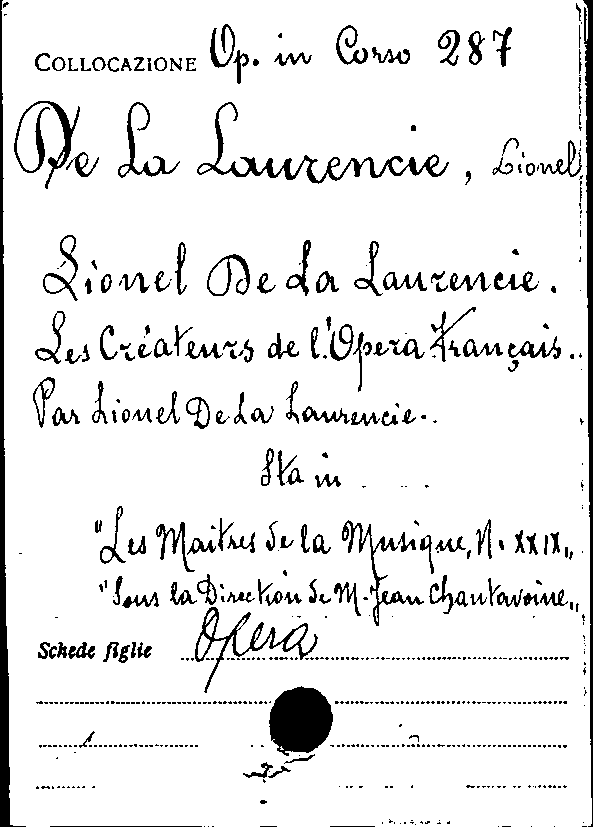 COLLOCAZIONE Op. in Corso 287
De La Laurencie, Lionel
Lionel De La Laurencie.
Les Créateurs de l'Opera Français..
Par Lionel De La Laurencie..
Sta in . . . .
"Les Maitres de la Musique, N. XXIX„
"Sous la Direction de M. Jean Chantavoine„
Schede figlie Opera